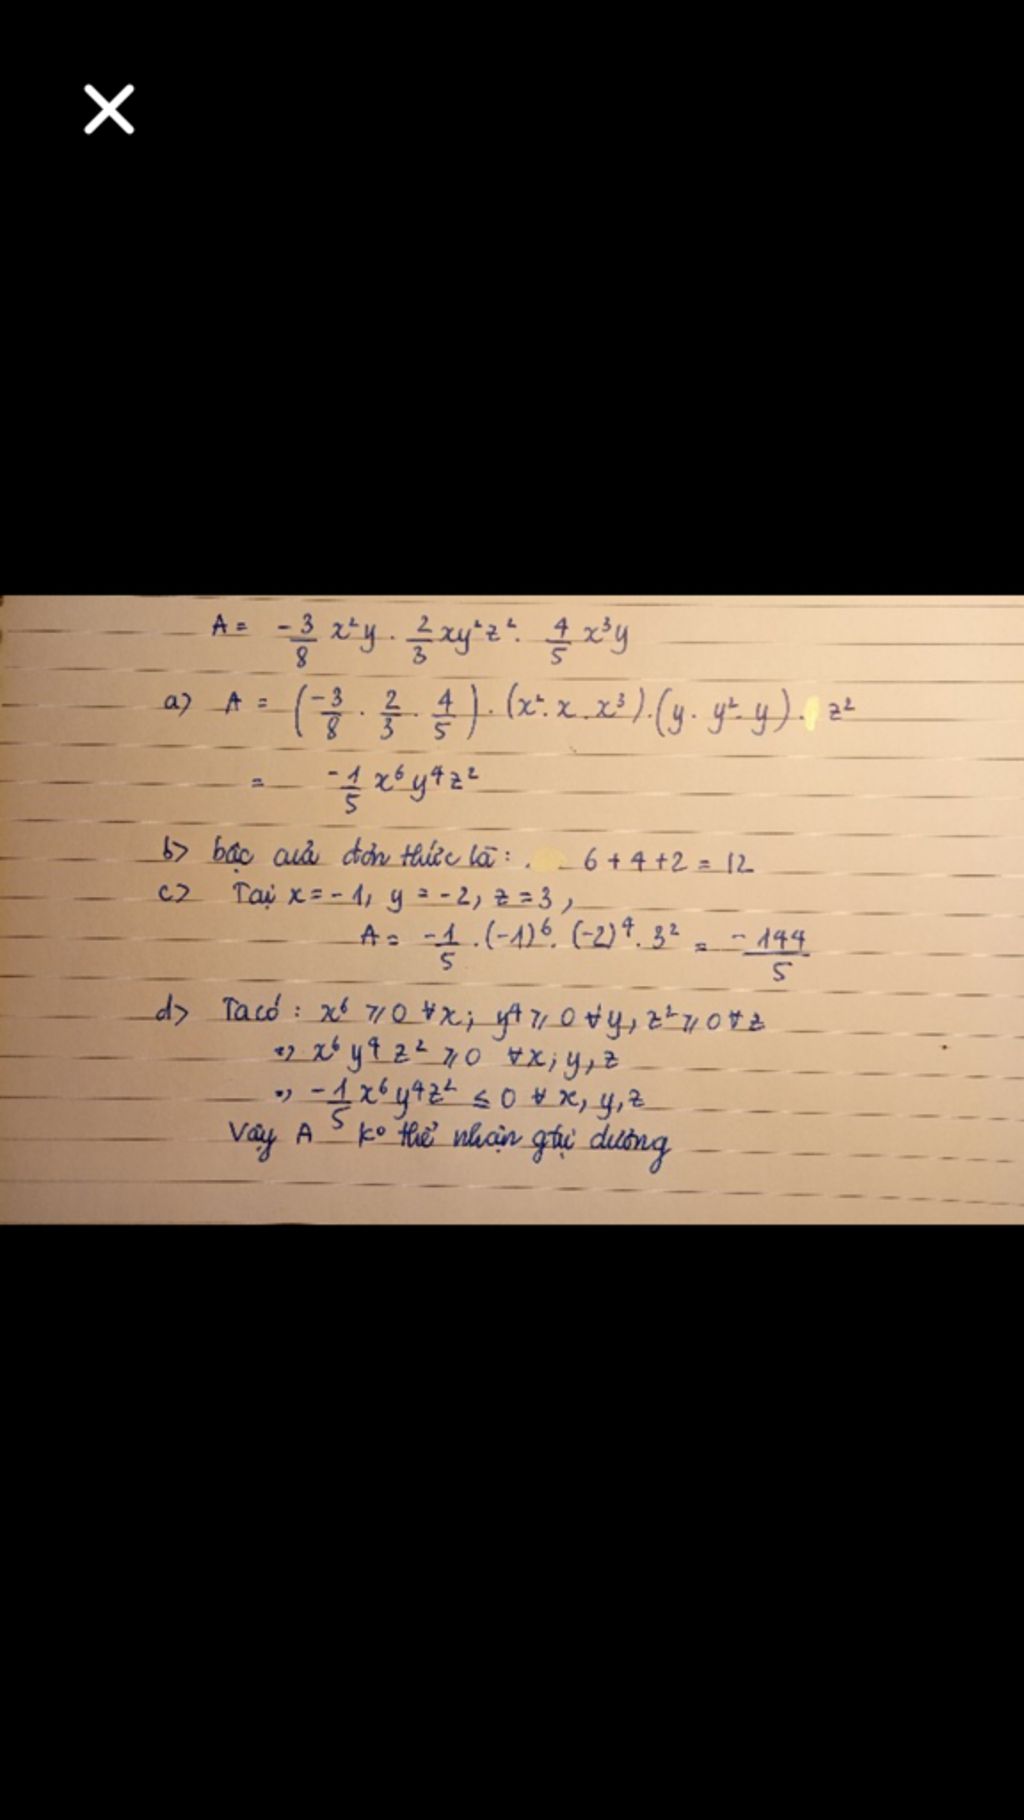 A = -3/8 x²y . 2/3 xy²z² . 4/5 x³y
a) A = (-3/8 . 2/3 . 4/5) . (x² . x . x³) . (y . y² . y) . z²
= -1/5 x⁶y⁴z²
b) bậc của đơn thức là : . 6 + 4 + 2 = 12
c) Tại x = -1, y = -2, z = 3,
A = -1/5 . (-1)⁶ . (-2)⁴ . 3² = -144/5
d) Ta có : x⁶ ⩾ 0 ∀x; y⁴ ⩾ 0 ∀y, z² ⩾ 0 ∀z
=> x⁶y⁴z² ⩾ 0 ∀x; y, z
=> -1/5 x⁶y⁴z² ≤ 0 ∀x, y, z
Vậy A ko thể nhận gtrị dương